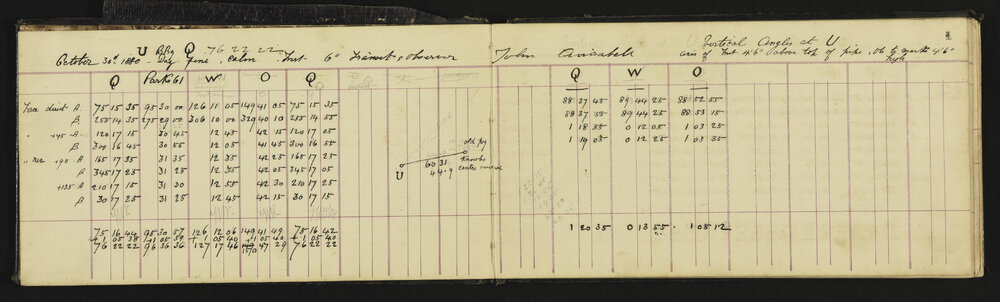 U Bkg Q 76 22 22
October 30th 1880 Day fine, calm Inst. 6" Transit & Observer John Arrizabell
Vertical Angles at U
axis of Inst 4'6" above top of pipe, Ob to marks 4'6" high
Q Park 61 W O Q
Q W O
Face direct A. 75 15 35 95 30 00 126 11 05 149 41 05 75 15 35 88 37 45 89 44 25 88 52 55
B 255 14 35 275 29 00 306 10 00 329 40 10 255 14 55 88 37 35 89 44 25 88 53 15
" +45 A 120 17 15 30 45 12 45 42 15 120 17 05 1 18 35 0 12 05 1 03 25
B 300 16 45 30 55 12 05 41 45 300 16 55 1 19 05 0 12 25 1 03 35
" rev +90 A 165 17 35 31 35 12 35 42 25 165 17 25
B 345 17 25 31 25 12 35 42 05 345 17 05
+135 A 210 17 15 31 30 12 55 42 30 210 17 25
B 30 17 25 31 25 12 45 42 15 30 17 15
old peg
60 31
knowles
U 44.9 center
75 16 44 95 30 57 126 12 06 149 41 49 75 16 42 1 20 35 0 13 55 1 05 12
+1 05 38 +1 05 39 +1 05 40 +1 05 40 +1 05 40
76 22 22 96 36 36 127 17 46 150 47 29 76 22 22